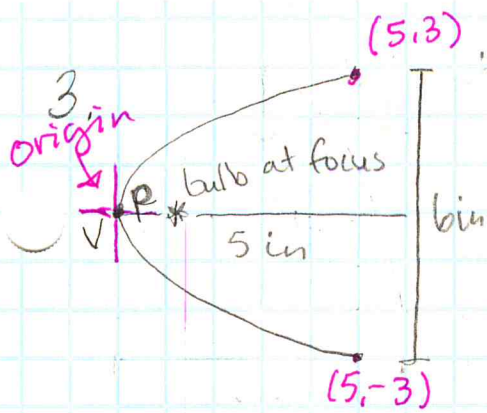 (5,3)
3.
origin
bulb at focus
P
V
5 in
6in
(5,-3)